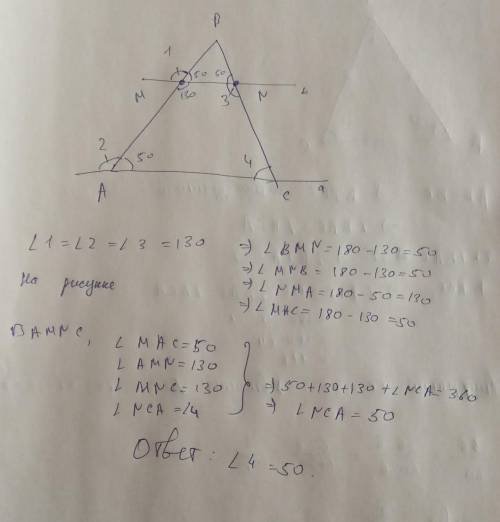 B
1
50 50
M 130 3 N b
2
50 4
A C a
∠1 = ∠2 = ∠3 = 130
На рисунке
=> ∠BMN = 180 - 130 = 50
=> ∠MNB = 180 - 130 = 50
=> ∠NMA = 180 - 50 = 130
=> ∠MAC = 180 - 130 = 50
В AMNC,
∠MAC = 50
∠AMN = 130
∠MNC = 130
∠NCA = ∠4
=> 50 + 130 + 130 + ∠NCA = 360
=> ∠NCA = 50
Ответ: ∠4 = 50.